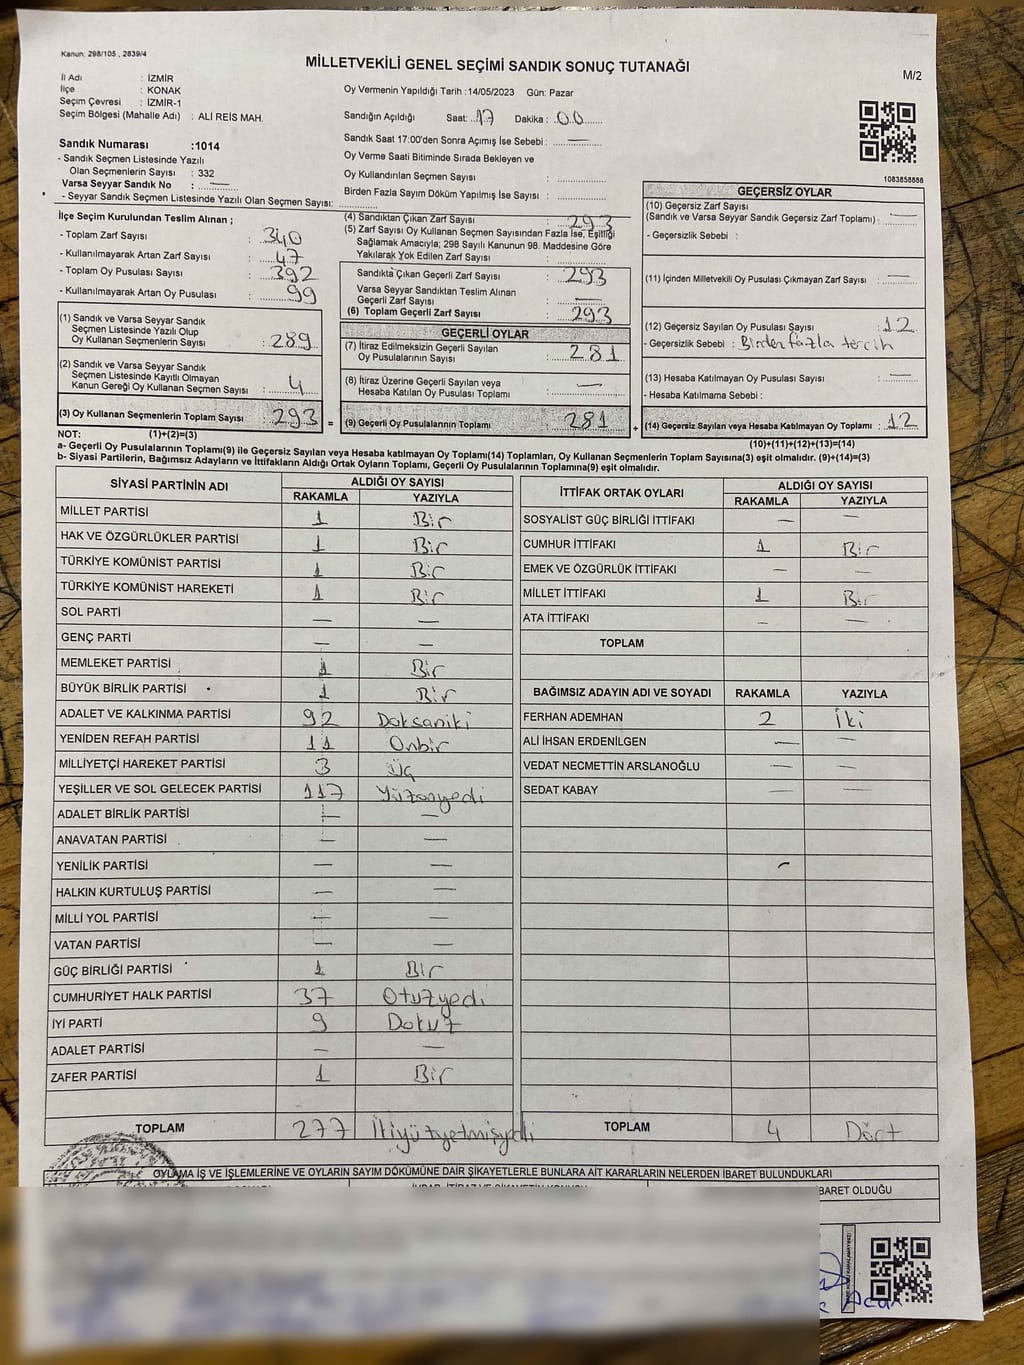 Kanun: 298/105 , 2839/4
MİLLETVEKİLİ GENEL SEÇİMİ SANDIK SONUÇ TUTANAĞI
M/2
İl Adı : İZMİR
İlçe : KONAK
Seçim Çevresi : İZMİR-1
Seçim Bölgesi (Mahalle Adı) : ALİ REİS MAH.
Oy Vermenin Yapıldığı Tarih :14/05/2023 Gün: Pazar
Sandığın Açıldığı Saat: 17 Dakika : 00
Sandık Saat 17:00'den Sonra Açılmış İse Sebebi : —
Oy Verme Saati Bitiminde Sırada Bekleyen ve
Oy Kullandırılan Seçmen Sayısı :
Birden Fazla Sayım Döküm Yapılmış İse Sayısı :
Sandık Numarası :1014
- Sandık Seçmen Listesinde Yazılı
Olan Seçmenlerin Sayısı : 332
Varsa Seyyar Sandık No : —
- Seyyar Sandık Seçmen Listesinde Yazılı Olan Seçmen Sayısı:
1083858888
İlçe Seçim Kurulundan Teslim Alınan ;
- Toplam Zarf Sayısı : 340
- Kullanılmayarak Artan Zarf Sayısı : 47
- Toplam Oy Pusulası Sayısı : 392
- Kullanılmayarak Artan Oy Pusulası : 99
(1) Sandık ve Varsa Seyyar Sandık
Seçmen Listesinde Yazılı Olup
Oy Kullanan Seçmenlerin Sayısı : 289
(2) Sandık ve Varsa Seyyar Sandık
Seçmen Listesinde Kayıtlı Olmayan
Kanun Gereği Oy Kullanan Seçmen Sayısı : 4
(3) Oy Kullanan Seçmenlerin Toplam Sayısı 293 =
(4) Sandıktan Çıkan Zarf Sayısı : 293
(5) Zarf Sayısı Oy Kullanan Seçmen Sayısından Fazla İse, Eşitliği
Sağlamak Amacıyla; 298 Sayılı Kanunun 98. Maddesine Göre
Yakılarak Yok Edilen Zarf Sayısı :
Sandıkta Çıkan Geçerli Zarf Sayısı : 293
Varsa Seyyar Sandıktan Teslim Alınan
Geçerli Zarf Sayısı : —
(6) Toplam Geçerli Zarf Sayısı : 293
GEÇERLİ OYLAR
(7) İtiraz Edilmeksizin Geçerli Sayılan
Oy Pusulalarının Sayısı : 281
(8) İtiraz Üzerine Geçerli Sayılan veya
Hesaba Katılan Oy Pusulası Toplamı : —
(9) Geçerli Oy Pusulalarının Toplamı : 281 +
GEÇERSİZ OYLAR
(10) Geçersiz Zarf Sayısı
(Sandık ve Varsa Seyyar Sandık Geçersiz Zarf Toplamı) : —
- Geçersizlik Sebebi :
(11) İçinden Milletvekili Oy Pusulası Çıkmayan Zarf Sayısı : —
(12) Geçersiz Sayılan Oy Pusulası Sayısı : 12
- Geçersizlik Sebebi : Birden fazla tercih
(13) Hesaba Katılmayan Oy Pusulası Sayısı : —
- Hesaba Katılmama Sebebi :
(14) Geçersiz Sayılan veya Hesaba Katılmayan Oy Toplamı : 12
NOT: (1)+(2)=(3)
(10)+(11)+(12)+(13)=(14)
a- Geçerli Oy Pusulalarının Toplamı(9) ile Geçersiz Sayılan veya Hesaba katılmayan Oy Toplamı(14) Toplamları, Oy Kullanan Seçmenlerin Toplam Sayısına(3) eşit olmalıdır. (9)+(14)=(3)
b- Siyasi Partilerin, Bağımsız Adayların ve İttifakların Aldığı Ortak Oyların Toplamı, Geçerli Oy Pusulalarının Toplamına(9) eşit olmalıdır.
SİYASİ PARTİNİN ADI ALDIĞI OY SAYISI
RAKAMLA YAZIYLA
MİLLET PARTİSİ 1 Bir
HAK VE ÖZGÜRLÜKLER PARTİSİ 1 Bir
TÜRKİYE KOMÜNİST PARTİSİ 1 Bir
TÜRKİYE KOMÜNİST HAREKETİ 1 Bir
SOL PARTİ — —
GENÇ PARTİ — —
MEMLEKET PARTİSİ 1 Bir
BÜYÜK BİRLİK PARTİSİ 1 Bir
ADALET VE KALKINMA PARTİSİ 92 Doksaniki
YENİDEN REFAH PARTİSİ 11 Onbir
MİLLİYETÇİ HAREKET PARTİSİ 3 Üç
YEŞİLLER VE SOL GELECEK PARTİSİ 117 Yüzonyedi
ADALET BİRLİK PARTİSİ — —
ANAVATAN PARTİSİ — —
YENİLİK PARTİSİ — —
HALKIN KURTULUŞ PARTİSİ — —
MİLLİ YOL PARTİSİ — —
VATAN PARTİSİ — —
GÜÇ BİRLİĞİ PARTİSİ 1 Bir
CUMHURİYET HALK PARTİSİ 37 Otuzyedi
İYİ PARTİ 9 Dokuz
ADALET PARTİSİ — —
ZAFER PARTİSİ 1 Bir
TOPLAM 277 İkiyüzyetmişyedi
İTTİFAK ORTAK OYLARI ALDIĞI OY SAYISI
RAKAMLA YAZIYLA
SOSYALİST GÜÇ BİRLİĞİ İTTİFAKI — —
CUMHUR İTTİFAKI 1 Bir
EMEK VE ÖZGÜRLÜK İTTİFAKI — —
MİLLET İTTİFAKI 1 Bir
ATA İTTİFAKI — —
TOPLAM
BAĞIMSIZ ADAYIN ADI VE SOYADI RAKAMLA YAZIYLA
FERHAN ADEMHAN 2 İki
ALİ İHSAN ERDENİLGEN — —
VEDAT NECMETTİN ARSLANOĞLU — —
SEDAT KABAY — —
TOPLAM 4 Dört
OYLAMA İŞ VE İŞLEMLERİNE VE OYLARIN SAYIM DÖKÜMÜNE DAİR ŞİKAYETLERLE BUNLARA AİT KARARLARIN NELERDEN İBARET BULUNDUKLARI
BARET OLDUĞU